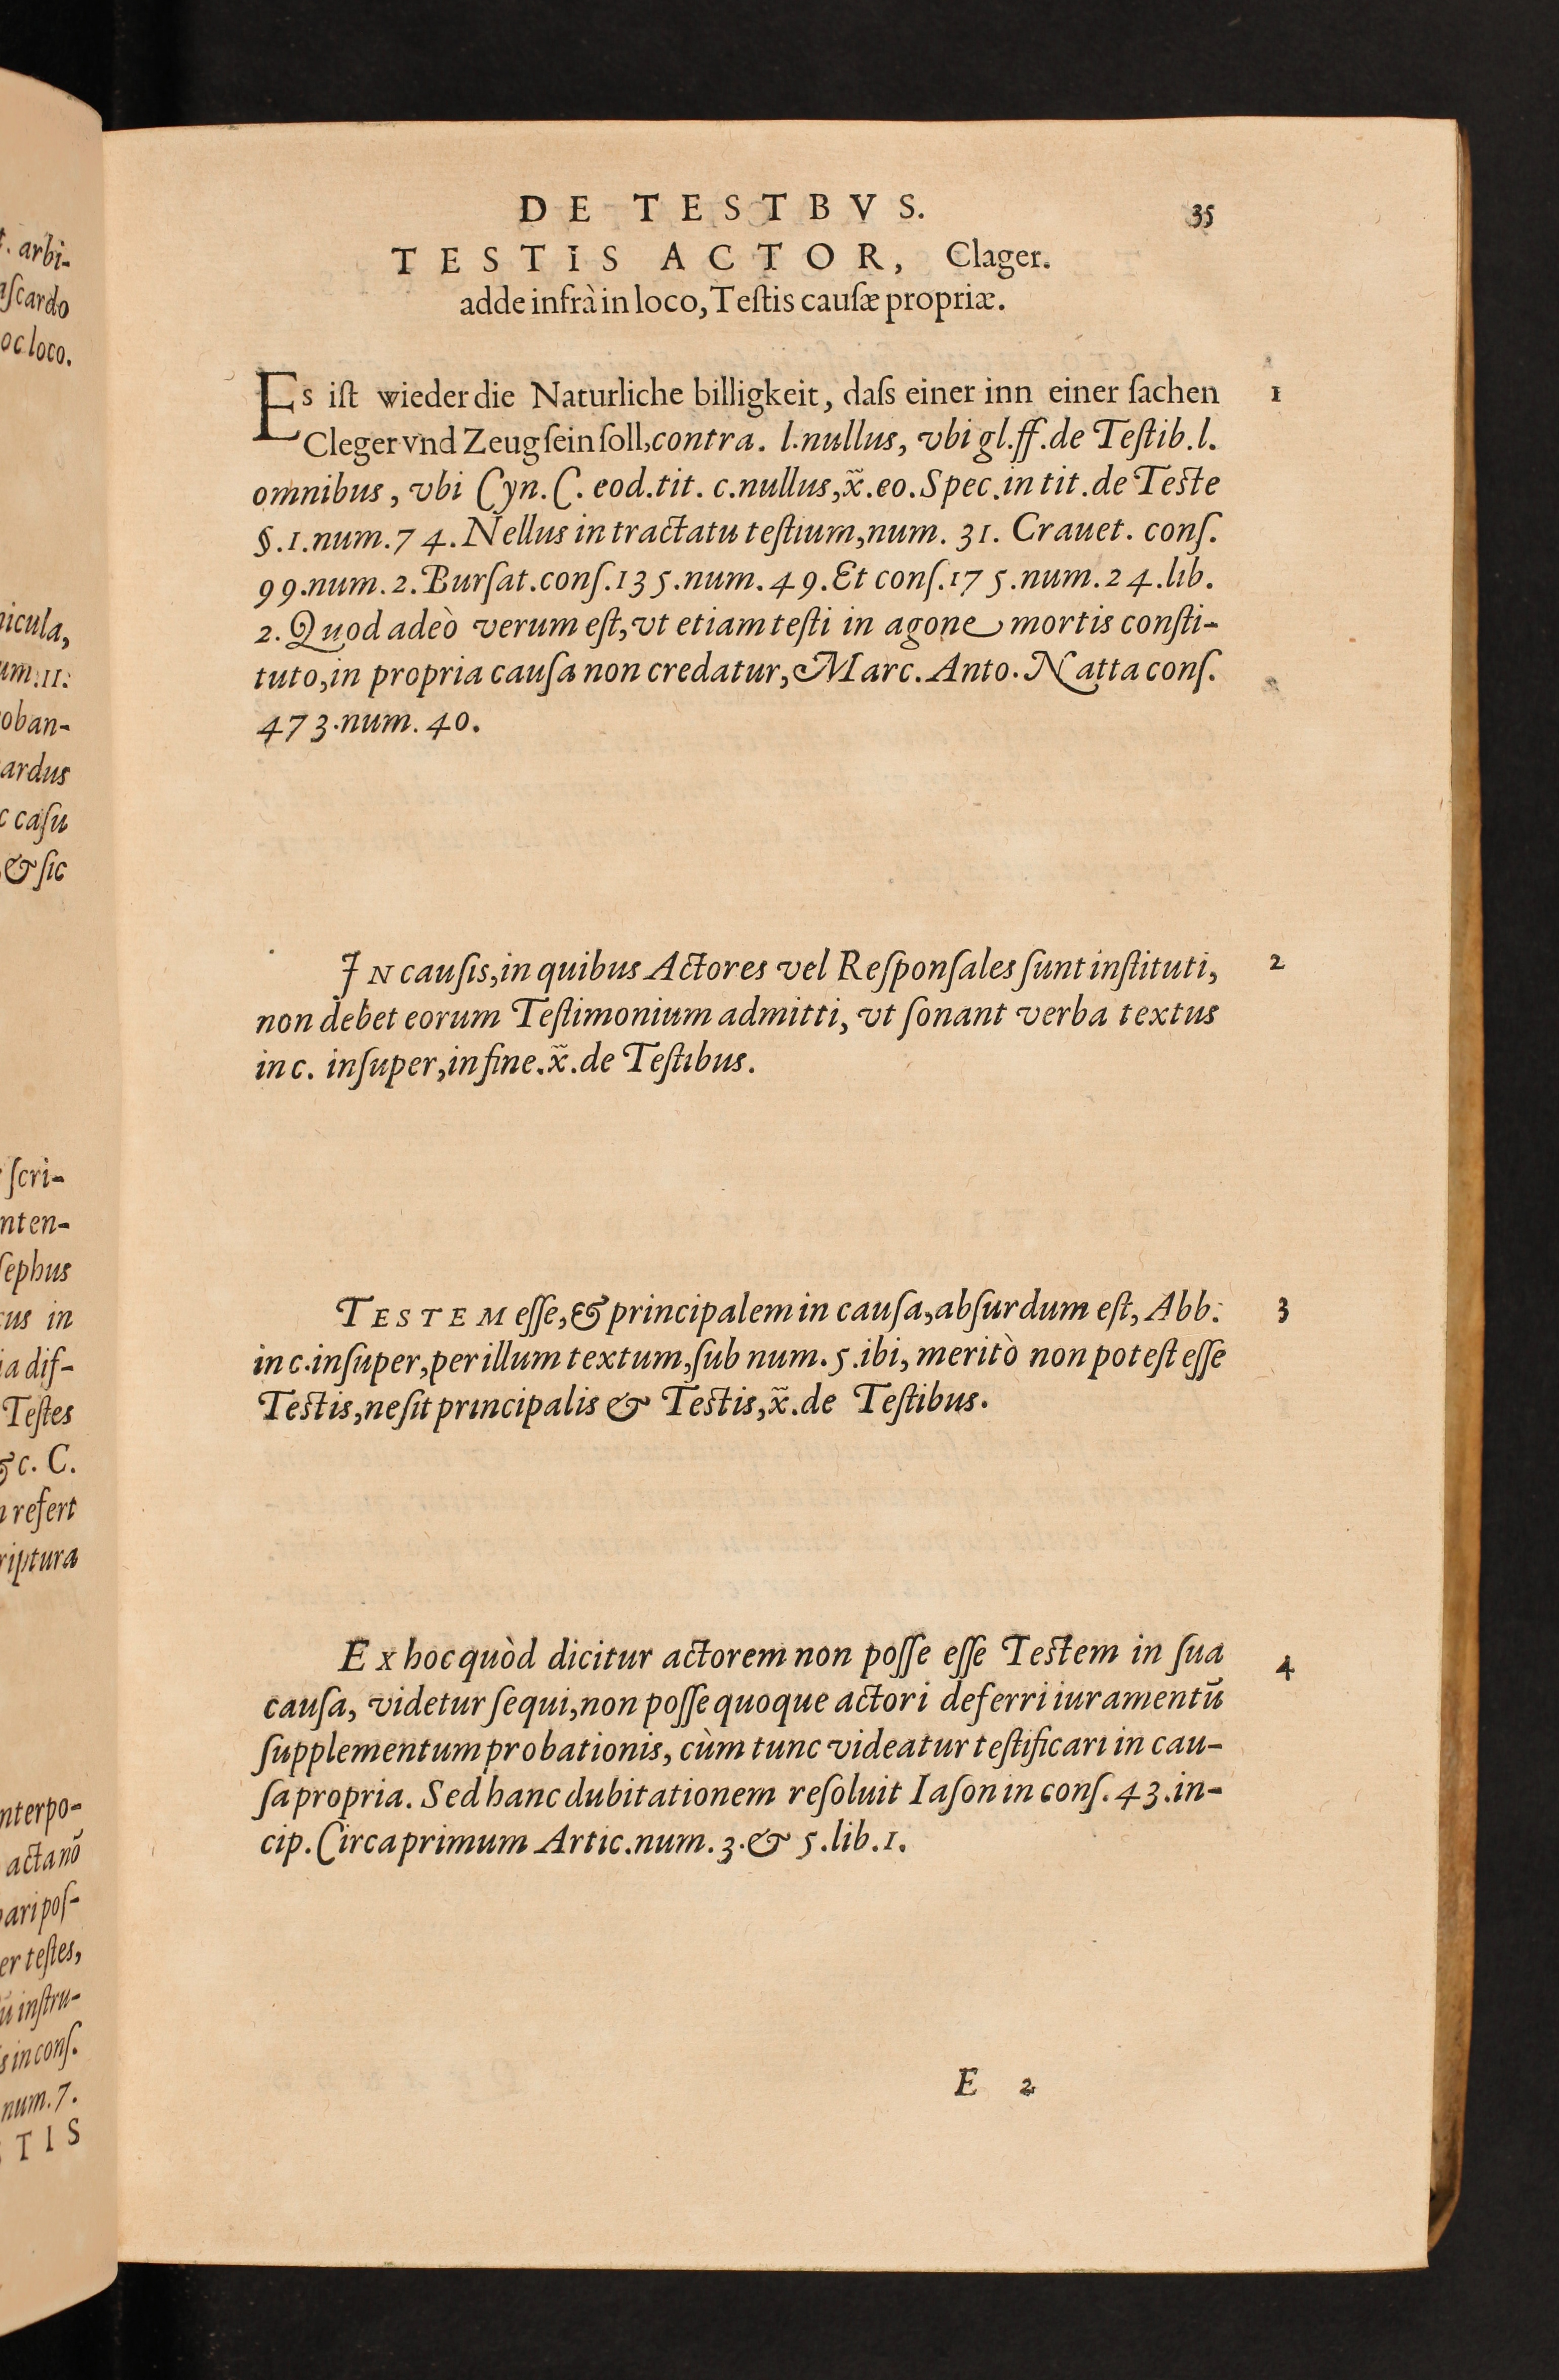 DE TESTBVS. 35
TESTIS ACTOR, Clager.
adde infrà in loco, Teſtis cauſæ propriæ.
Es iſt wieder die Naturliche billigkeit, daſs einer inn einer ſachen 1
Cleger vnd Zeug ſein ſoll, contra. l. nullus, vbi gl. ff. de Teſtib. l.
omnibus, vbi Cyn. C. eod. tit. c. nullus, x̃. eo. Spec. in tit. de Teſte
§. 1. num. 74. Nellus in tractatu teſtium, num. 31. Crauet. conſ.
99. num. 2. Burſat. conſ. 135. num. 49. Et conſ. 175. num. 24. lib.
2. Quod adeò verum eſt, vt etiam teſti in agone mortis conſti-
tuto, in propria cauſa non credatur, Marc. Anto. Natta conſ.
473. num. 40.
IN cauſis, in quibus Actores vel Reſponſales ſunt inſtituti, 2
non debet eorum Teſtimonium admitti, vt ſonant verba textus
in c. inſuper, in fine. x̃. de Teſtibus.
TESTEM eſſe, & principalem in cauſa, abſurdum eſt, Abb. 3
in c. inſuper, per illum textum, ſub num. 5. ibi, meritò non poteſt eſſe
Teſtis, ne ſit principalis & Teſtis, x̃. de Teſtibus.
EX hoc quòd dicitur actorem non poſſe eſſe Teſtem in ſua 4
cauſa, videtur ſequi, non poſſe quoque actori deferri iuramentũ
ſupplementum probationis, cùm tunc videatur teſtificari in cau-
ſa propria. Sed hanc dubitationem reſoluit Iaſon in conſ. 43. in-
cip. Circa primum Artic. num. 3. & 5. lib. 1.
E 2